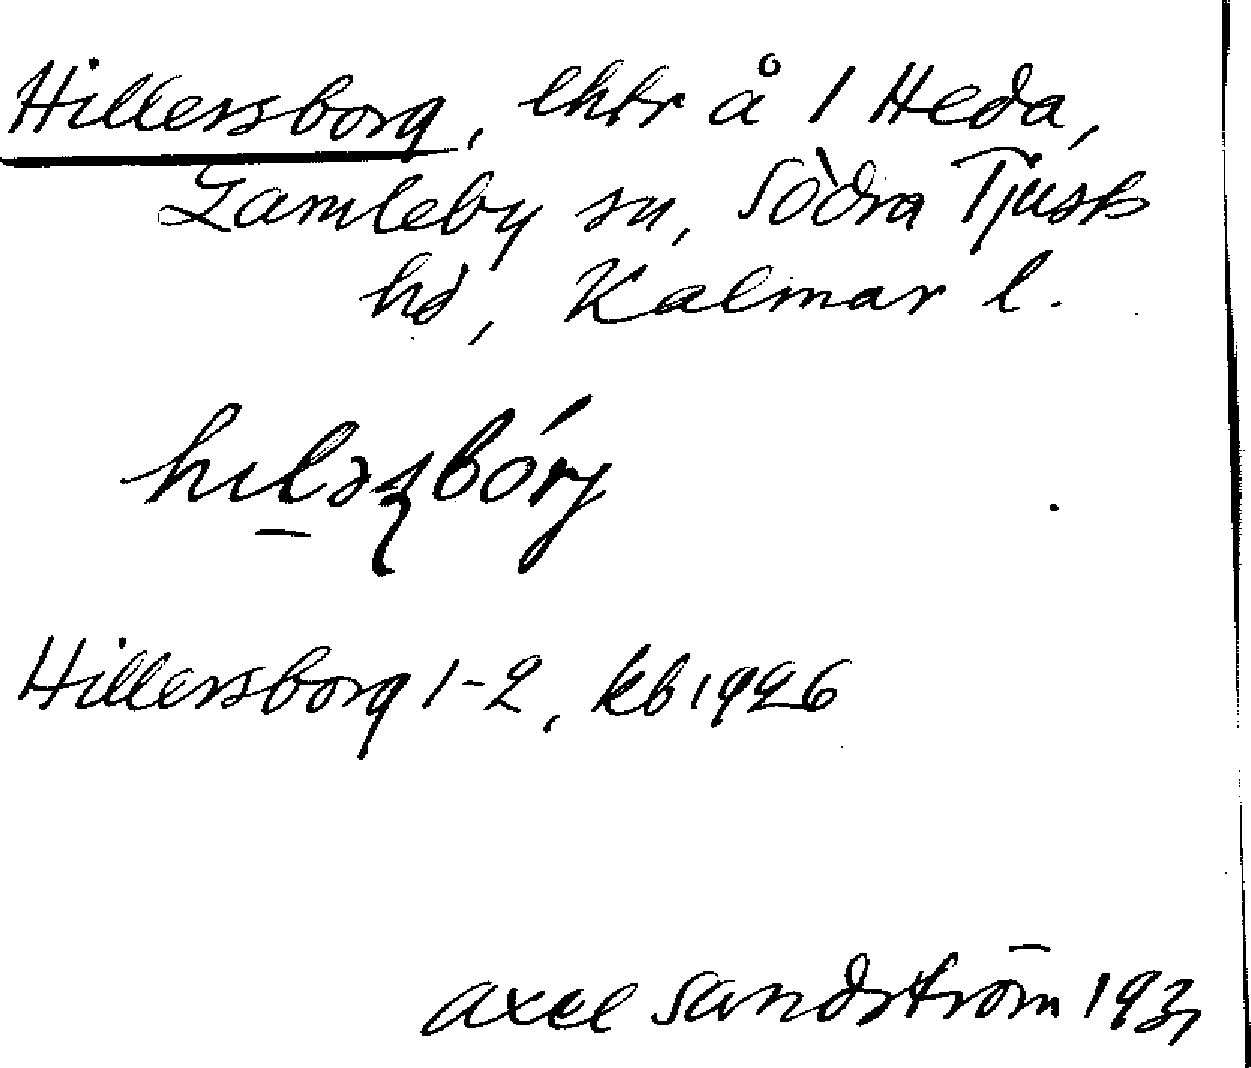 Hillersborg, lhtr å 1 Heda,
Gamleby sn, Södra Tjusts
hd, Kalmar l.
Hillersborg 1-2, kb 1926
Axel Sandström 193